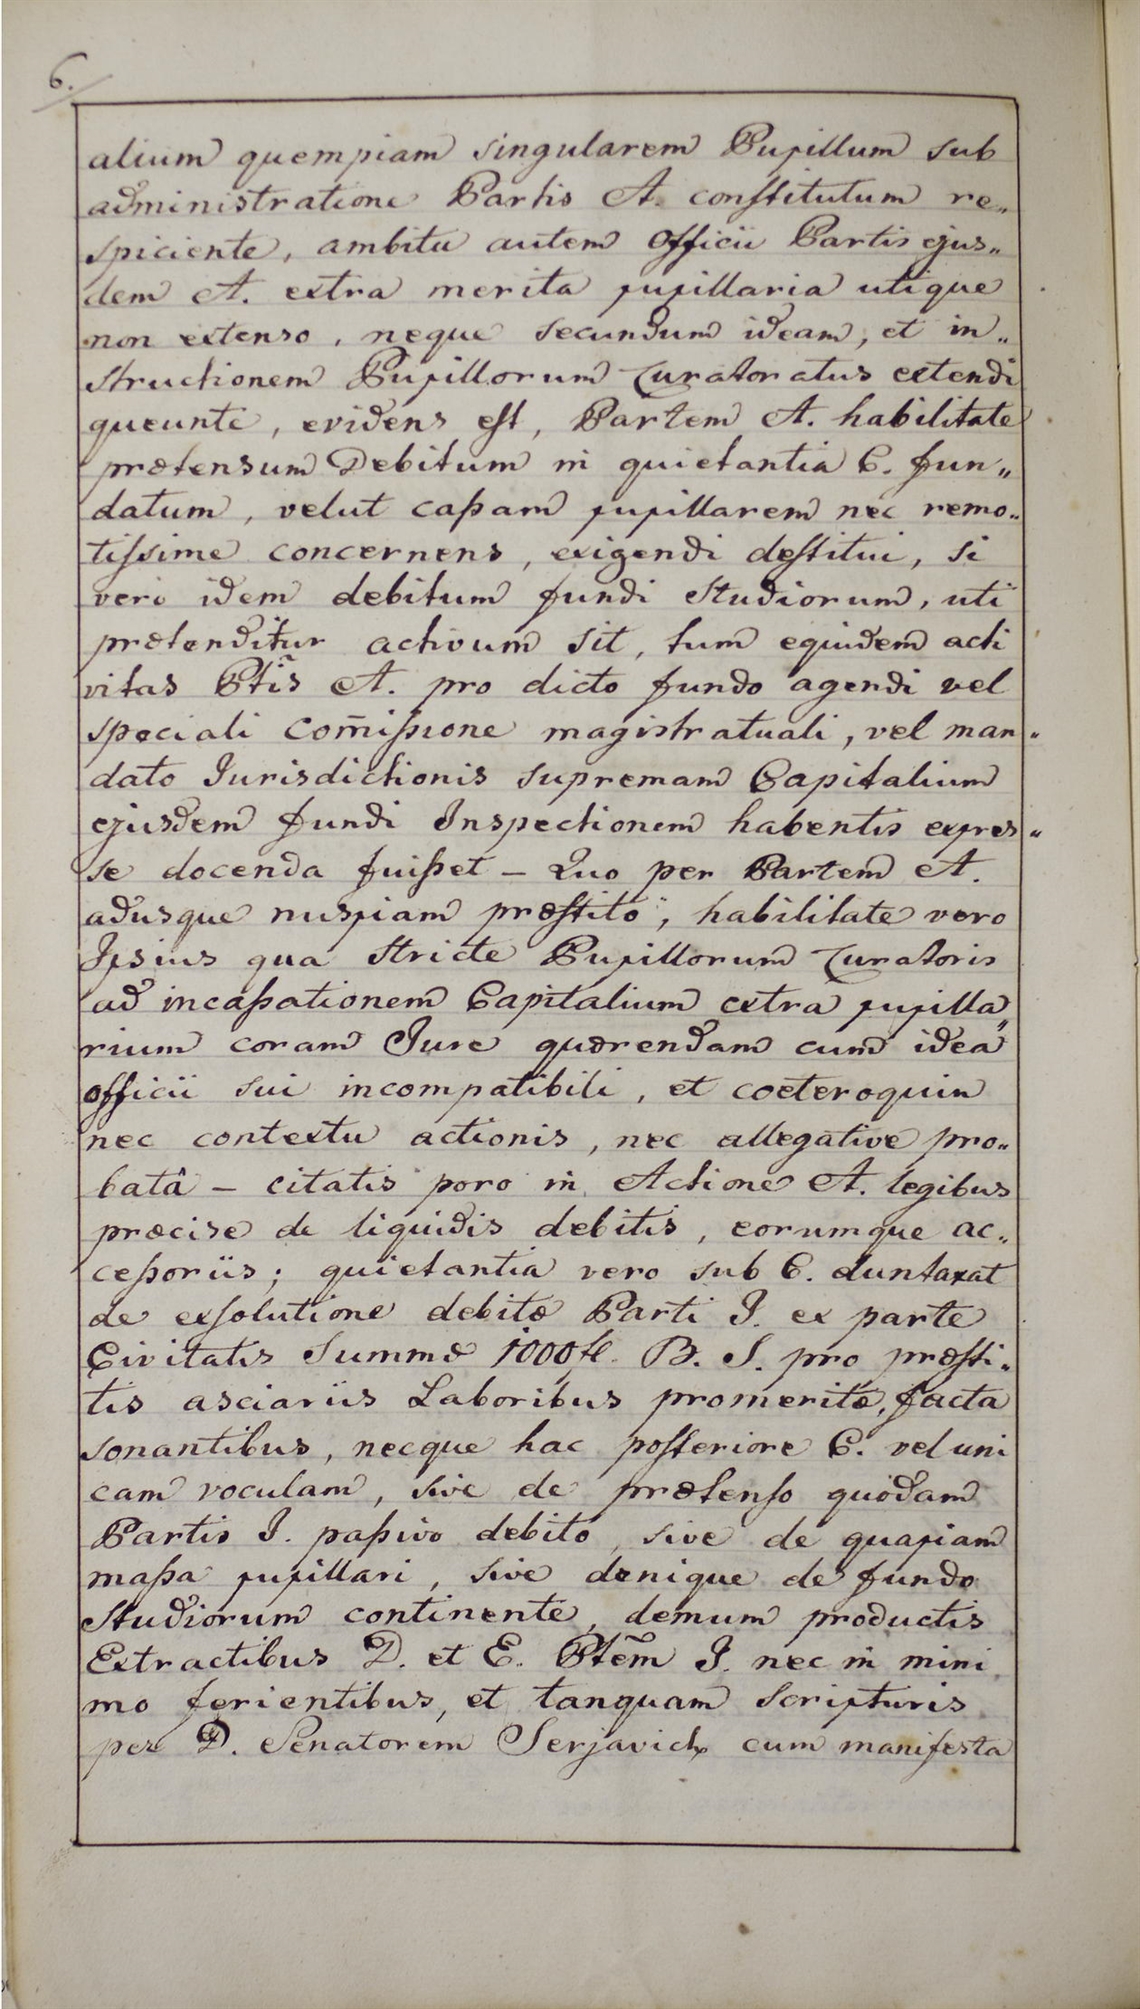 6.
alium quempiam singularem Pupillum sub
administratione Partis A. constitutum re„
spiciente, ambitu autem Officii Partis ejus„
dem A. extra merita pupillaria utique
non extenso, neque secundum ideam, et in„
structionem Pupillorum Curatoratus extendi
queunte, evidens est, Partem A. habilitate
prætensum Debitum in quietantia C. fun„
datum, velut cassam pupillarem nec remo„
tissime concernens, exigendi destitui, si
vero idem debitum fundi Studiorum, uti
prætenditur activum sit, tum equidem acti
vitas Ptĩs A. pro dicto fundo agendi vel
speciali Com̃issione magistratuali, vel man„
dato Iurisdictionis supremam Capitalium
ejusdem fundi Inspectionem habentis expres„
se docenda fuisset – Quo per Partem A.
adusque nuspiam præstito, habilitate vero
Ipsius qua stricte Pupillorum Curatoris
ad incassationem Capitalium extra pupilla„
rium coram Jure quærendam cum idea
officii sui incompatibili, et coeteroquin
nec contextu actionis, nec allegative pro„
batâ – citatis poro in Actione A. legibus
præcise de liquidis debitis, eorumque ac„
cessoriis; quietantia vero sub C. duntaxat
de exsolutione debitæ Parti I. ex parte
Civitatis Summæ 1000 fl. B. S. pro præsti„
tis asciariis Laboribus promeritæ, facta
sonantibus, necque hac posteriore C. vel uni
cam voculam, sive de prætenso quodam
Partis I. passivo debito, sive de quapiam
massa pupillari, sive denique de fundo
Studiorum continente, demum productis
Extractibus D. et E. Ptẽm I. nec in mini
mo ferientibus, et tanquam scripturis
per D. Senatorem Serjavich cum manifesta